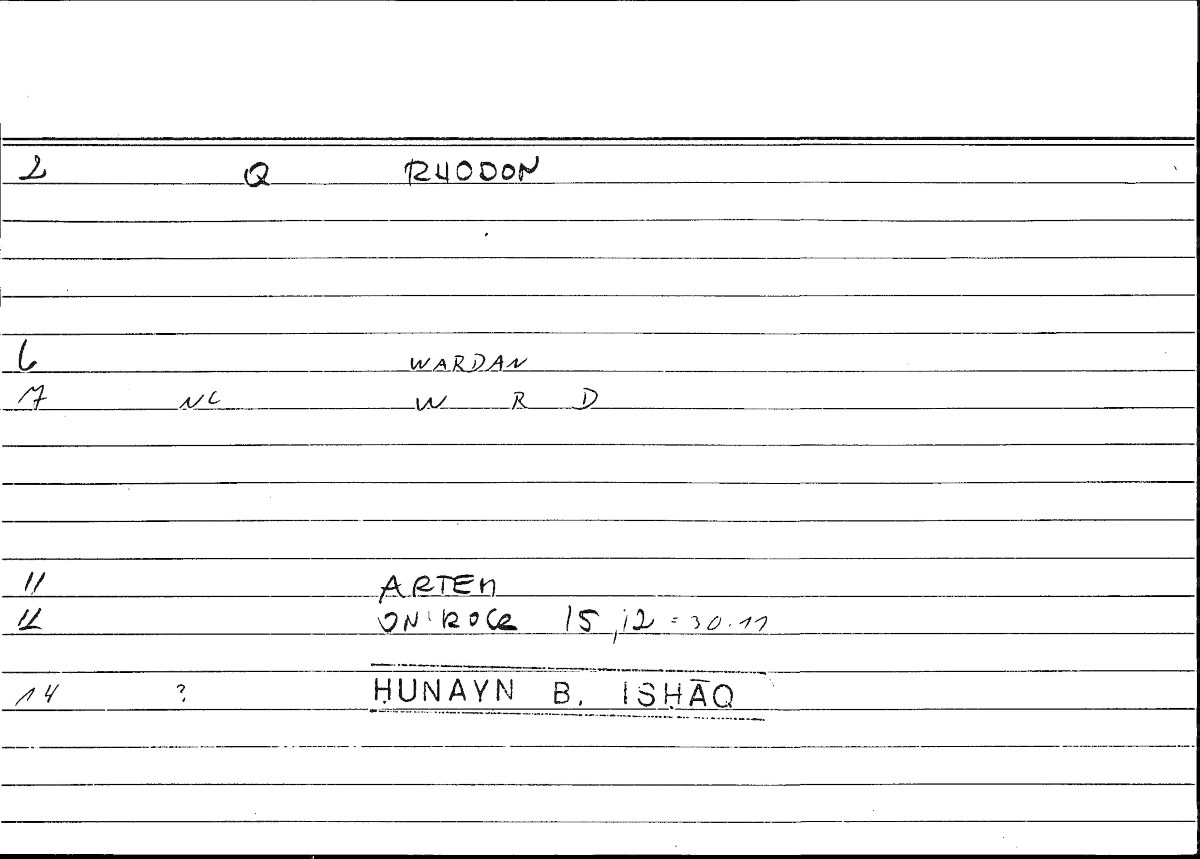 2 Q RHODON
6 WARDAN
7 NC W R D
11 ARTEM
12 ONIROCR 15,12 = 30.11
14 ? ḤUNAYN B. ISḤĀQ